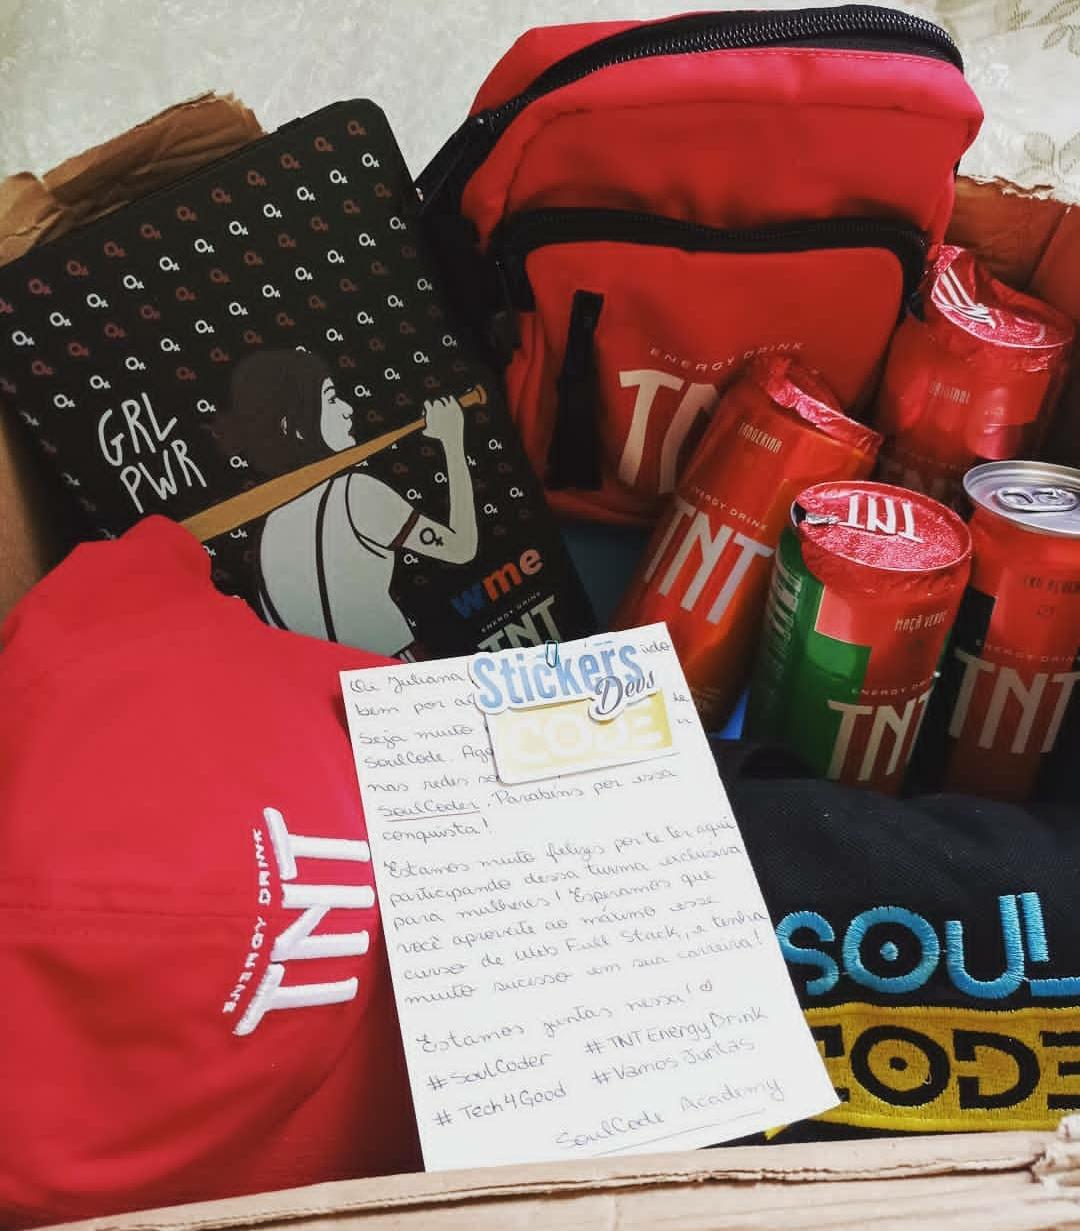 GRL
PWR
wme
ENERGY DRINK
TNT
ENERGY DRINK
TANGERINA
ENERGY DRINK
TNT
ORIGINAL
TNT
MAÇÃ VERDE
ENERGY DRINK
TNT
ENERGY DRINK
TNT
TNT
ENERGY DRINK
Stickers
Devs
CODE
Oi Juliana
bem por
Seja muito
SoulCode.
nas redes
SoulCoder. Parabéns por essa
conquista!
Estamos muito felizes por te ter aqui
participando dessa turma exclusiva
para mulheres! Esperamos que
você aproveite ao máximo esse
curso de Web Full Stack, e tenha
muito sucesso em sua carreira!
Estamos juntas nessa! ♡
#SoulCoder #TNTEnergyDrink
#Tech4Good #VamosJuntas
SoulCode Academy
SOUL
CODE